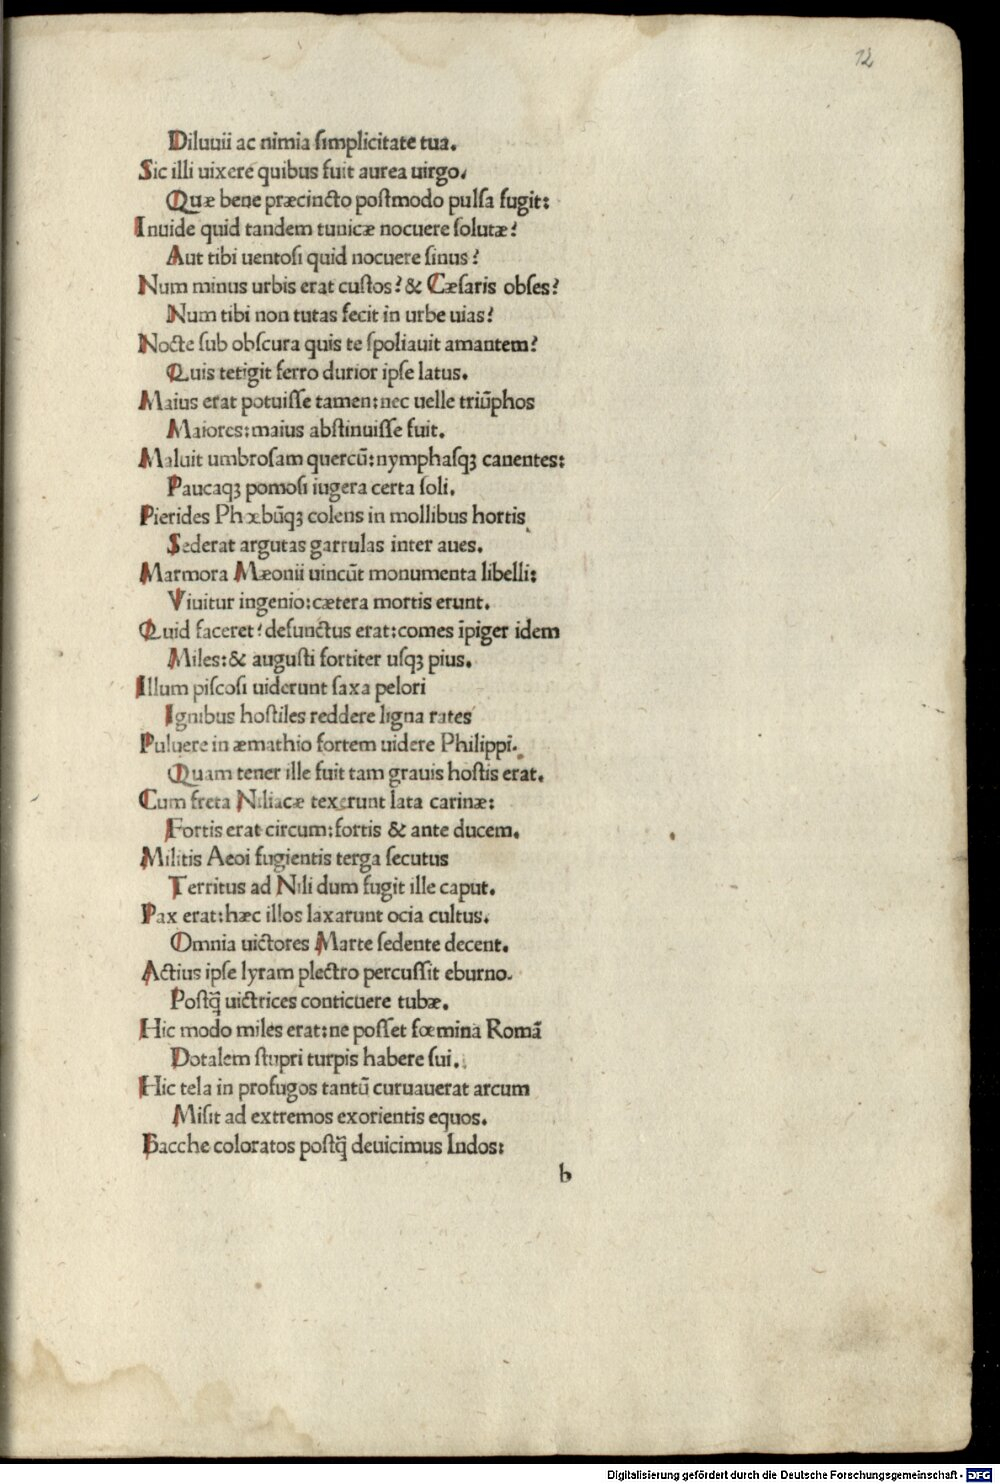 12
Diluuii ac nimia simplicitate tua.
Sic illi uixere quibus fuit aurea uirgo.
Quæ bene præcincto postmodo pulsa fugit:
Inuide quid tandem tunicæ nocuere solutæ?
Aut tibi uentosi quid nocuere sinus?
Num minus urbis erat custos? & Cæsaris obses?
Num tibi non tutas fecit in urbe uias?
Nocte sub obscura quis te spoliauit amantem?
Quis tetigit ferro durior ipse latus.
Maius erat potuisse tamen:nec uelle triũphos
Maiores:maius abstinuisse fuit.
Maluit umbrosam quercũ:nymphasqꝫ canentes:
Paucaqꝫ pomosi iugera certa soli.
Pierides Phœbũqꝫ colens in mollibus hortis
Sederat argutas garrulas inter aues.
Marmora Mæonii uincũt monumenta libelli:
Viuitur ingenio:cætera mortis erunt.
Quid faceret? defunctus erat:comes ĩpiger idem
Miles:& augusti fortiter usqꝫ pius.
Illum piscosi uiderunt saxa pelori
Ignibus hostiles reddere ligna rates
Puluere in æmathio fortem uidere Philippi.
Quam tener ille fuit tam grauis hostis erat.
Cum freta Niliacæ texerunt lata carinæ:
Fortis erat circum:fortis & ante ducem.
Militis Aeoi fugientis terga secutus
Territus ad Nili dum fugit ille caput.
Pax erat:hæc illos laxarunt ocia cultus.
Omnia uictores Marte sedente decent.
Actius ipse lyram plectro percussit eburno.
Postq̃ uictrices conticuere tubæ.
Hic modo miles erat:ne posset fœmina Romã
Dotalem stupri turpis habere sui.
Hic tela in profugos tantũ curuauerat arcum
Misit ad extremos exorientis equos.
Bacche coloratos postq̃ deuicimus Indos:
b
Digitalisierung gefördert durch die Deutsche Forschungsgemeinschaft - DFG